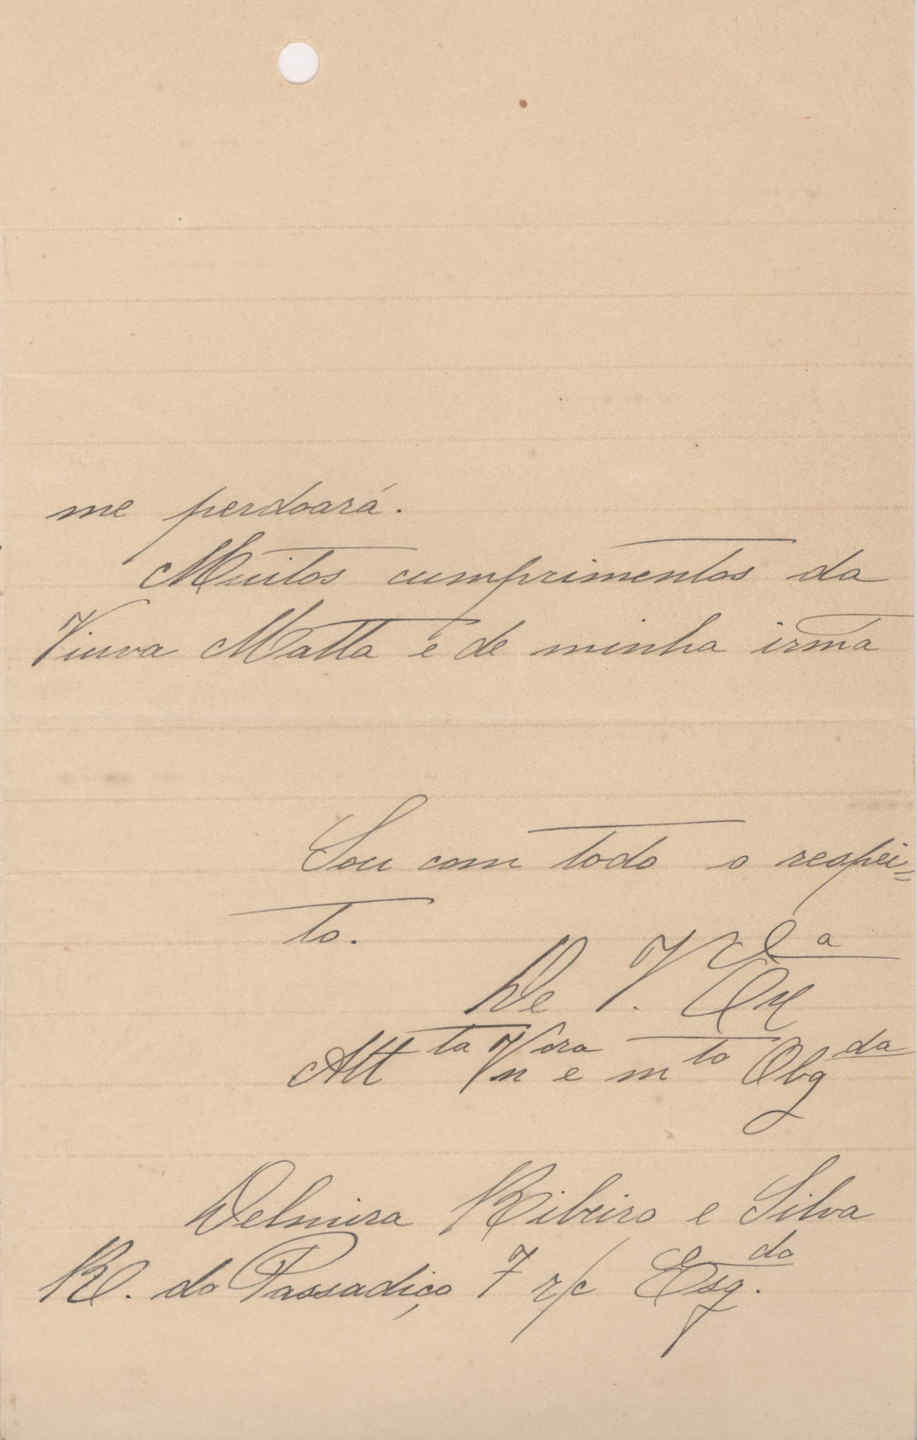 me perdoará.
Muitos cumprimentos da
Viuva Matta e de minha irmã
Sou com todo o respei=
to.
De V. Exª
Attᵗᵃ Vnᵒʳᵃ e mᵗᵒ Obgᵈᵃ
Delmira Ribeiro e Silva
R. do Passadiço 7 r/c Esq.ᵈᵒ